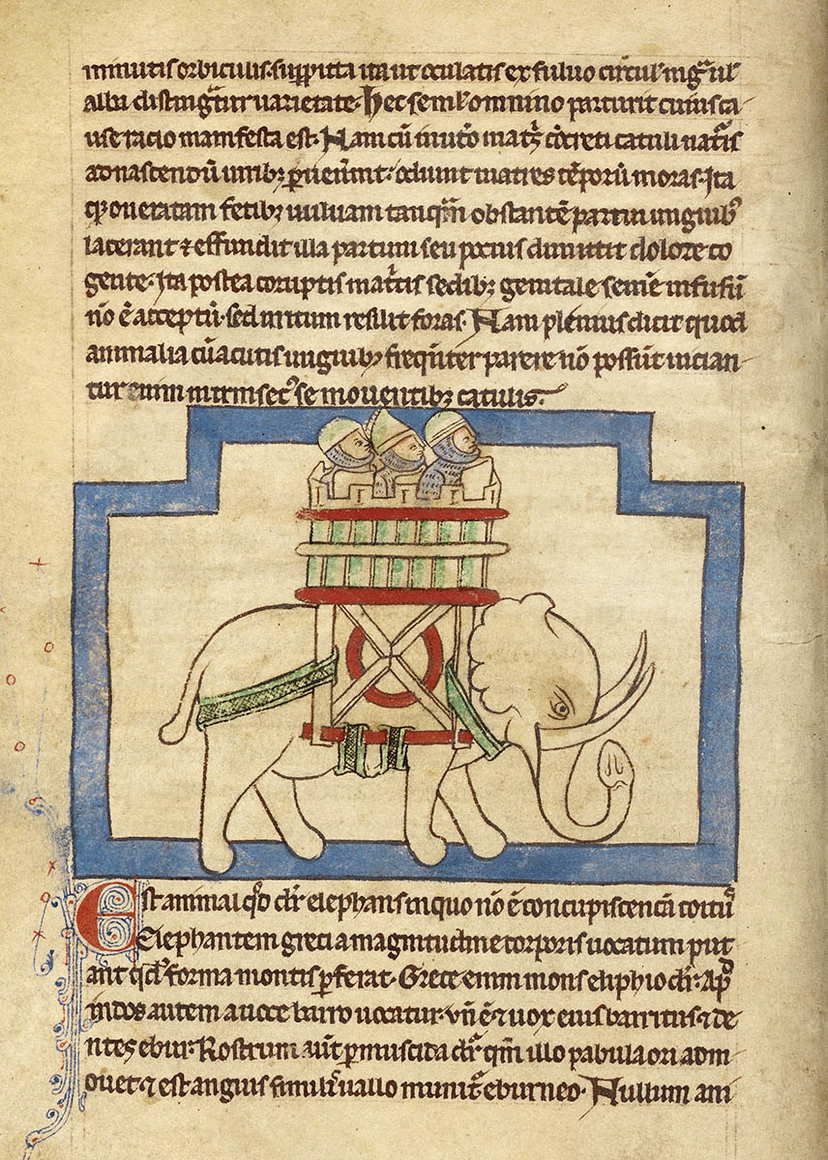 minutis orbiculis suppicta ita ut oculatis ex fuluo circul' nigr̃ uł
alba distinḡtur uarietate. Hec semł omnino parturit cuius ca
use racio manifesta est. Nam cū in utõ matr̃ c̃creti catuli nat̃is
ad nascendū uiribꝫ puenīint. odiunt matres tēporū moras. Ita
qꝫ oneratam fetibꝫ uuluam tanq̃m obstantē partui unguibꝫ
lacerant ⁊ effundit illa partum seu pocius dimittit dolore co
gente. Ita postea coruptis mat̃cis sedibꝫ genitale semē infusū
nō ē acceptū. sed irritum resilit foras. Nam plenius dicit quod
animalia cū acutis unguibꝫ freqñter parere nō possūt uician
tur enim intrinsec᾿ se mouentibꝫ catulis.
Est animal qd̃ dr̃ elephans in quo nō ē concupiscencia coitū
Elephantem greci a magnitudine corporis uocatum put
ant qd̃ forma montis p̱ferat. Grece enim mons eliphio dr̃. Ap̄
indos autem a uoce barro uocatur. vñ ē ⁊ uox eius barritus. ⁊ de
ntes ebur. Rostrum aut̃ pmuscida dr̃ qm̃ illo pabula ori adm
ouet. ⁊ est angui simil' uallo munit̃ eburneo. Nullum ani